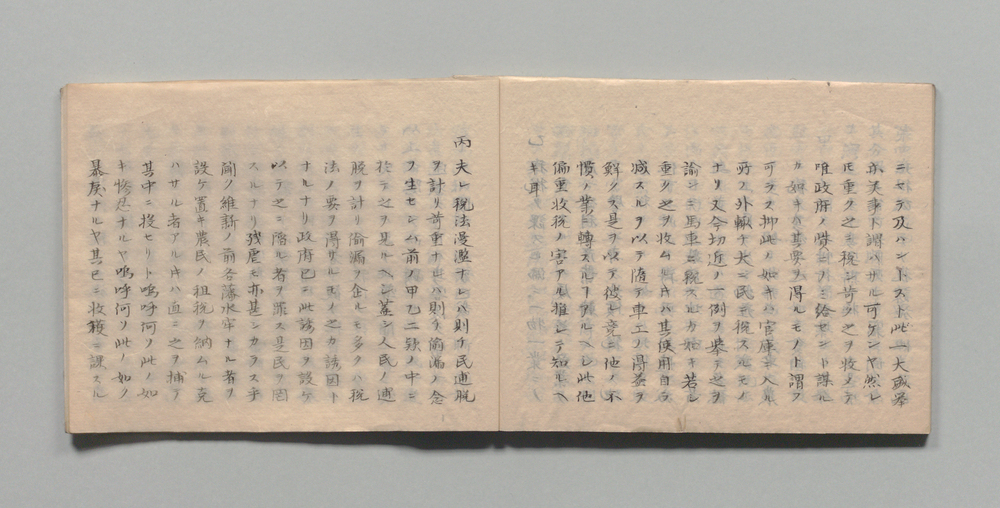 ニシテ及ハントスト此一大盛擧
亦美事ト謂ハサル可ケンヤ然レ
圧重ク之キ税シ苛ク之ヲ收メテ
唯政府ノ降音ノミ給セント謀ル
カ如キハ其要ヲ得ルモノト謂フ
可ラス抑此ノ如キハ官庫ニ入ル
所ノ外輙チ大ニ民ニ税スルモノ
ナリ又今切近ノ一例ヲ擧テ之ヲ
諭シニ馬車ニ税スルカ如キ若シ
重ク之ヲ收ム其使用自ラ
減スルヲ以テ隨テ車工ノ得益ヲ
鮮クス是ヲ以テ彼レ竟ニ他ノ不
慣ノ業ニ轉スルアルヘシ此他
偏重收税ノ害アル推シテ知ルヘ
キ耳
丙夫レ税法漫濫ナレハ則チ民逋脱
ヲ計リ苛重ナレハ則チ偏漏ノ念
ヲ生セシム前ノ甲乙二款ノ中ニ
於テ之ヲ見ルヘシ蓋シ人民ノ逋
脱ヲ計リ偸漏ヲ企ルモノ多クハ税
法ノ要ヲ得サルモノ之カ誘因ト
ナルナリ政府已ニ此誘因ヲ設ケ
以テ之ニ陷ル者ヲ罪ス是民ヲ罔
スルナリ殘虐モ亦甚シカラスヤ
聞ク維新ノ前各藩水牢ナル者ヲ
設ケ置キ農民ノ租税ヲ納ムル克
ハサル者アル片ハ直ニ之ヲ捕テ
其中ニ投セリト嗚呼何ソ此ノ如
キ慘虐ナルヤ嗚呼何ソ此ノ如ク
暴戻ナルヤ其已ニ收穫ニ課スル